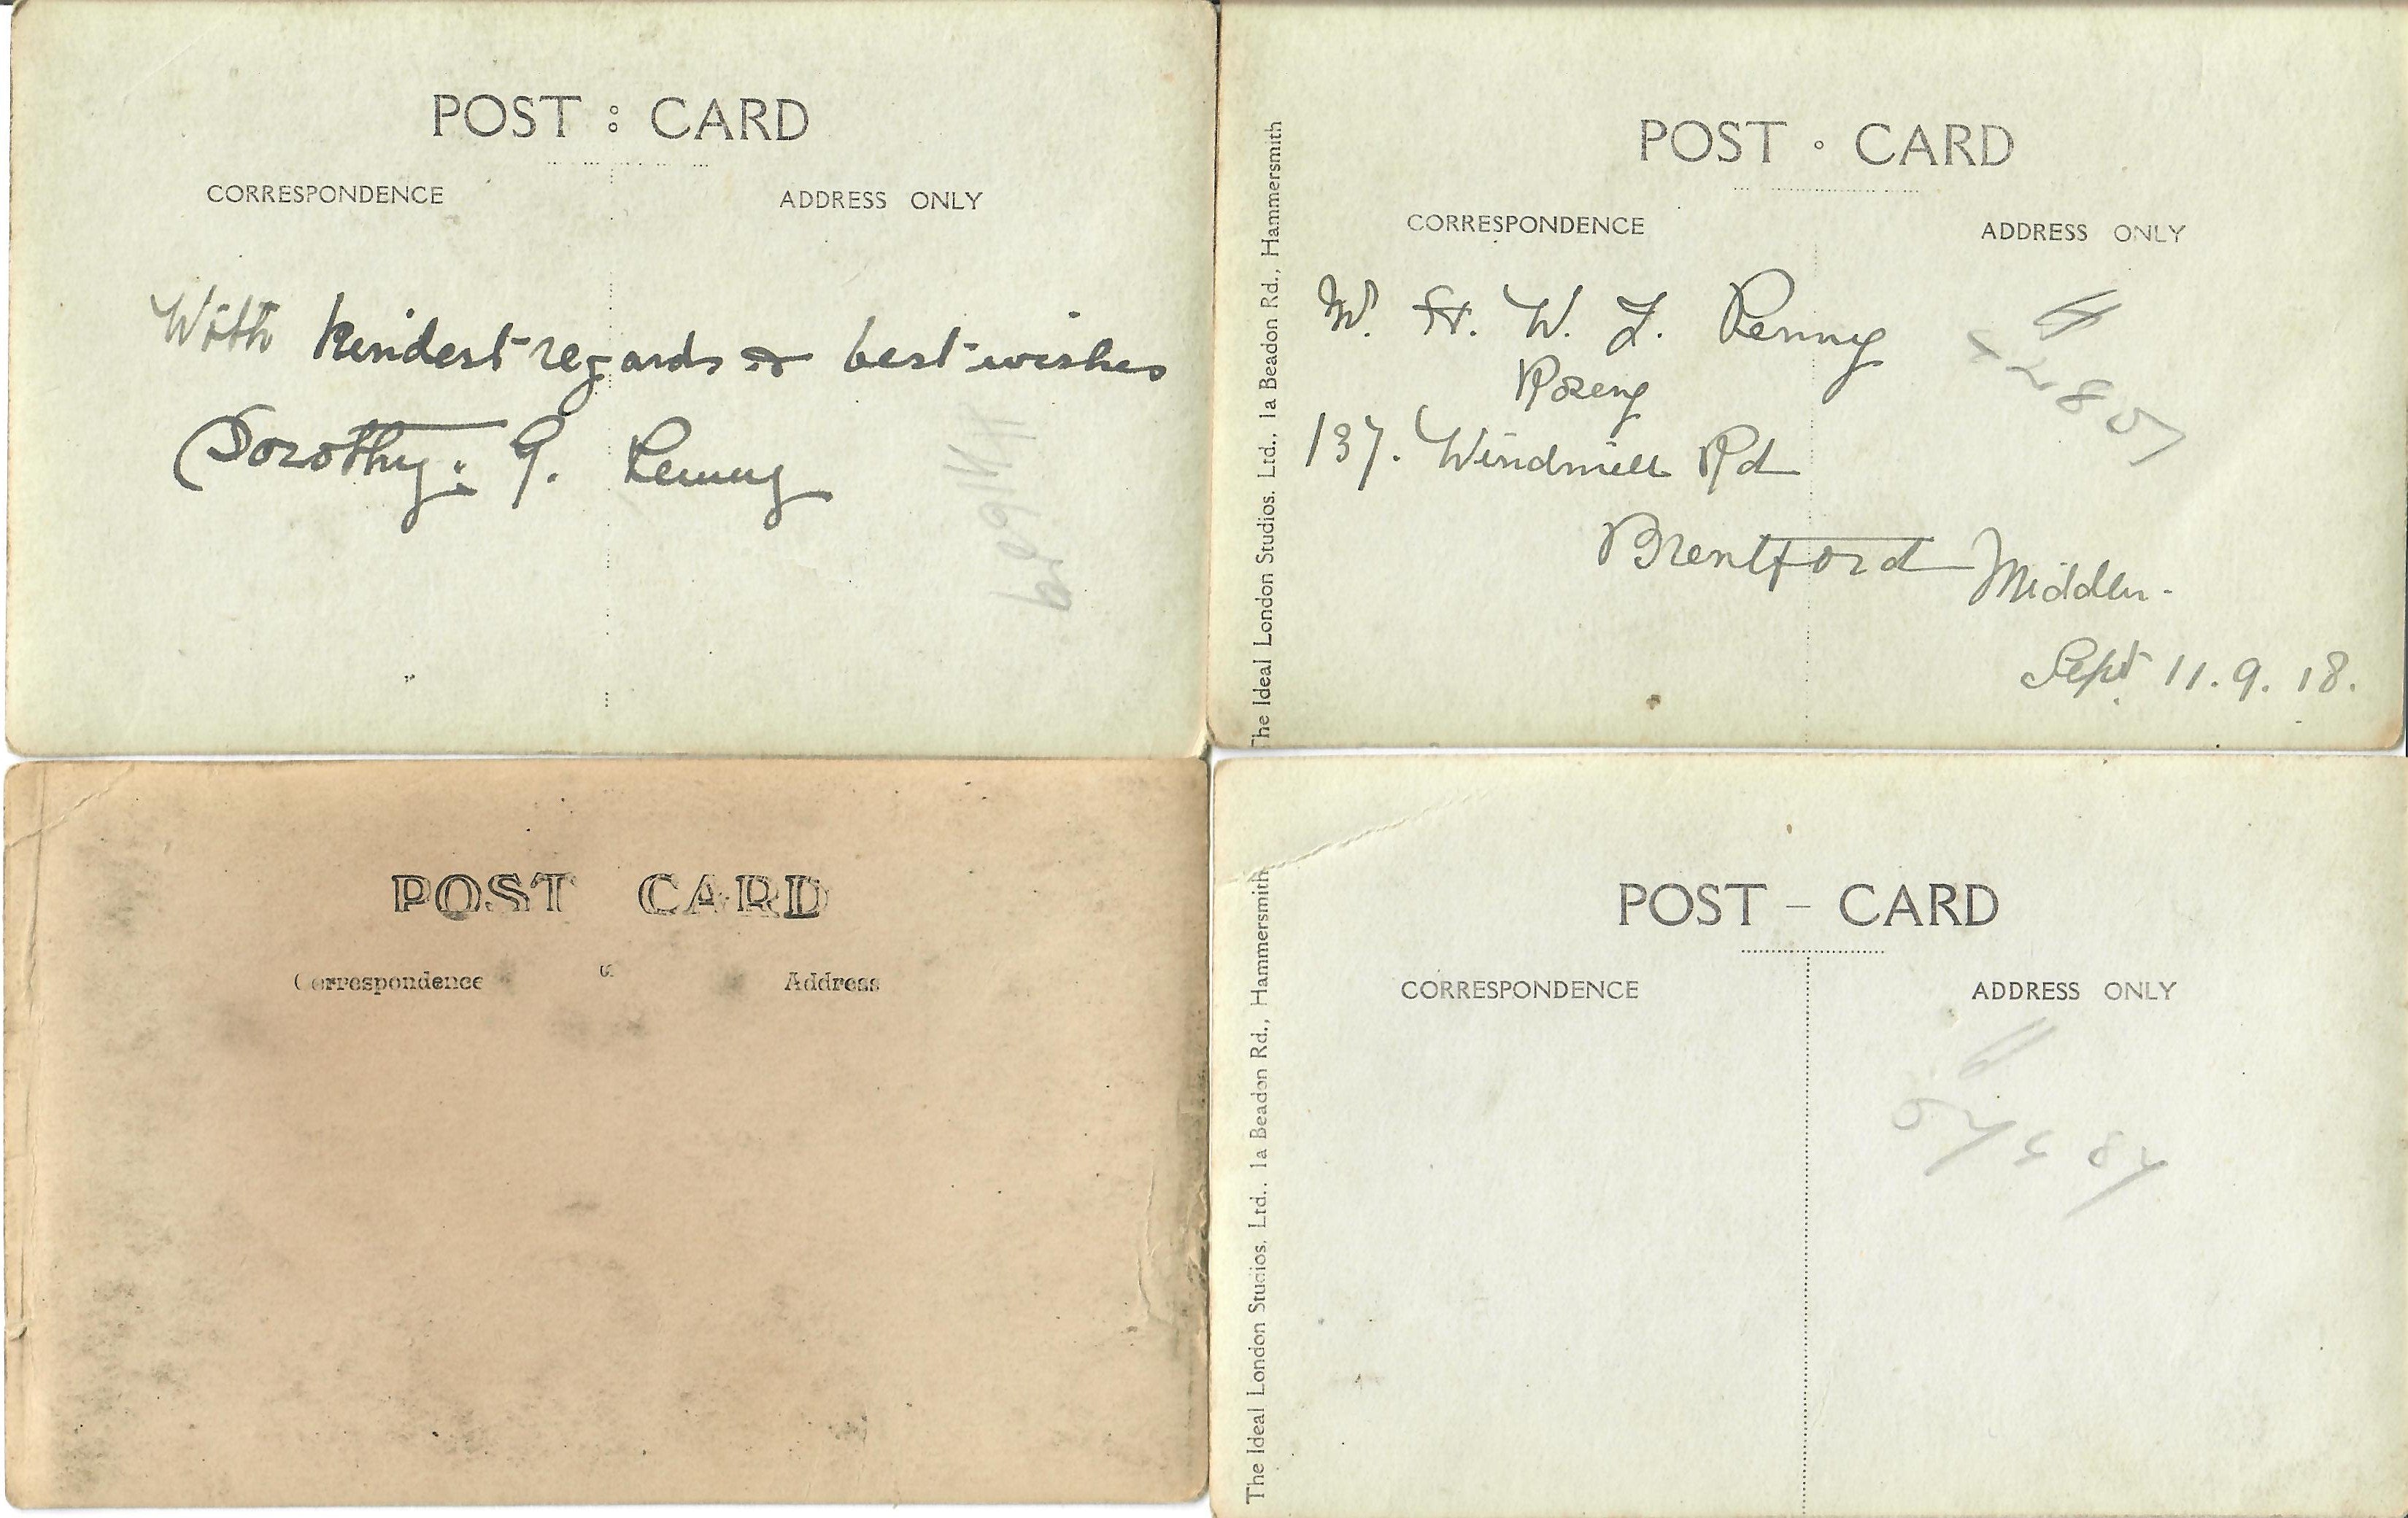 POST : CARD
CORRESPONDENCE ADDRESS ONLY
With kindest regards & best wishes
Dorothy. G. Penny
POST . CARD
CORRESPONDENCE ADDRESS ONLY
W. H. W. J. Penny
137. Windmill Rd
Brentford Middlx.
Sept 11. 9. 18.
The Ideal London Studios. Ltd., 1a Beadon Rd., Hammersmith
POST CARD
Correspondence Address
POST - CARD
CORRESPONDENCE ADDRESS ONLY
The Ideal London Studios. Ltd., 1a Beadon Rd., Hammersmith